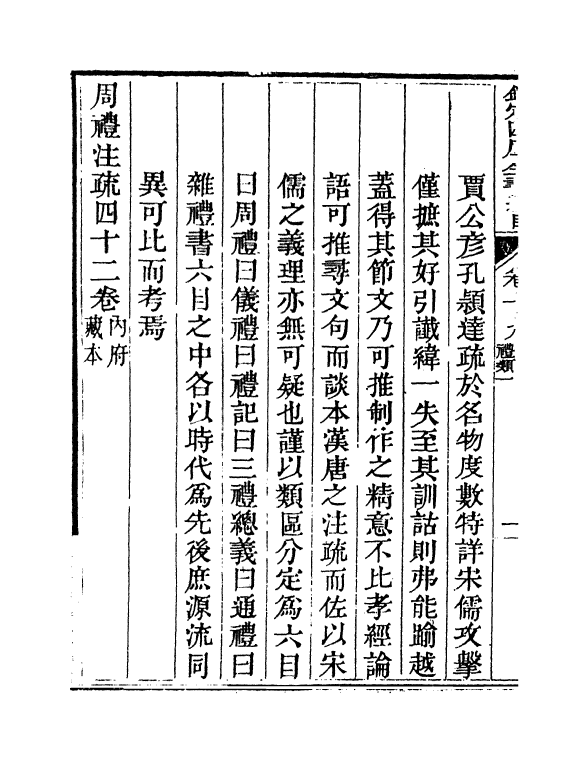 賈公彦孔頴達疏於名物度數特詳宋儒攻擊
僅摭其好引讖緯一失至其訓詁則弗能踰越
蓋得其節文乃可推制作之精意不比孝經論
語可推尋文句而談本漢唐之注疏而佐以宋
儒之義理亦無可疑也謹以類區分定為六目
曰周禮曰儀禮曰禮記曰三禮總義曰通禮曰
雜禮書六目之中各以時代為先後庶源流同
異可比而考焉
周禮注疏四十二卷內府藏本
卷十九
禮類一